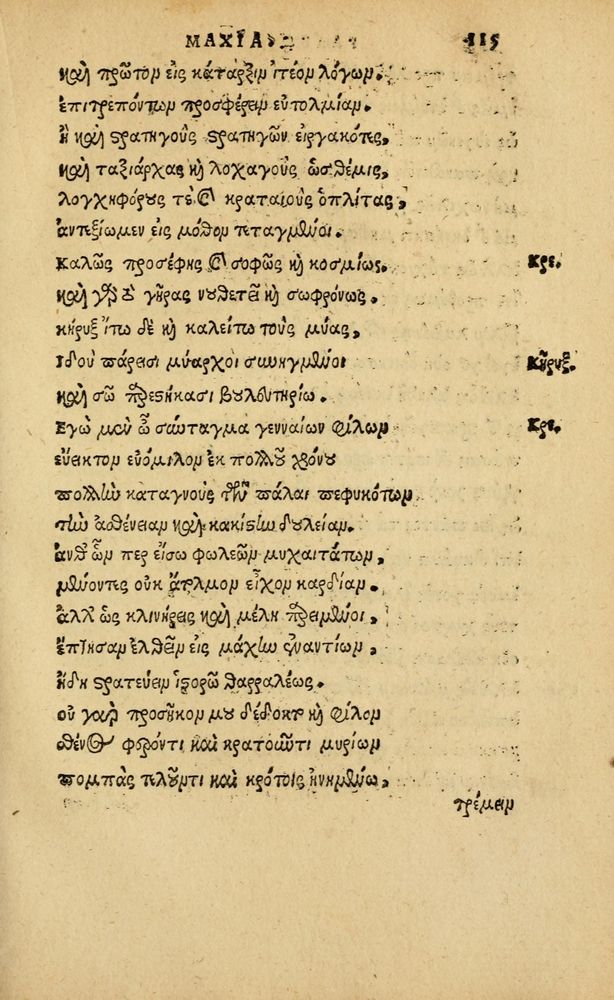 ΜΑΧΙΑ. 115
καὶ πρῶτον εἰς κάταρξιν ἰτέον λόγων.
ἐπιτρεπόντων προσφέρειν εὐτολμίαν.
ἢ καὶ στρατηγοὺς στρατηγῶν εἰργακότες,
καὶ ταξιάρχας κὴ λοχαγοὺς ὡς θέμις,
λογχηφόρους τε καὶ κραταιοὺς ὁπλίτας,
ἀντεξίωμεν εἰς μόθον τεταγμένοι.
Καλῶς προσέφης καὶ σοφῶς κὴ κοσμίως. Κρε.
καὶ γὰρ τὸ γῆρας νουθετεῖν κὴ σωφρόνως,
κήρυξ ἴτω δὲ κὴ καλείτω τοὺς μύας,
Ἰδοὺ πάρεισι μύαρχοι συνηγμένοι Κῆρυξ.
καὶ σῷ βουλευτηρίῳ.
Ἐγὼ μὲν ὦ σύνταγμα γενναίων φίλων Κρε.
εὔτακτον εὐόμιλον ἐκ πολλοῦ χρόνου
πολλὴν καταγνοὺς τῶν πάλαι πεφυκότων
τὴν ἀσθένειαν καὶ κακίστην δουλείαν.
ἀνθ' ὧν περ εἴσω φωλεῶν μυχαιτάτων,
μένοντες οὐκ ἄτολμον εἶχον καρδίαν.
ἀλλ' ὡς κλινήρεις καὶ μέλη παρειμένοι,
ἔπτησαν ἐλθεῖν εἰς μάχην ἐναντίων,
ἤδη στρατεύειν ἱστορῶ θαρραλέως.
οὐ γὰρ προσῆκον μου δέδοκτ κὴ φίλον
σθένος φέροντι καὶ κρατοῦντι μυρίων
πομπὰς τελοῦντι καὶ κρότοις ἡνημένῳ,
τρέμειν